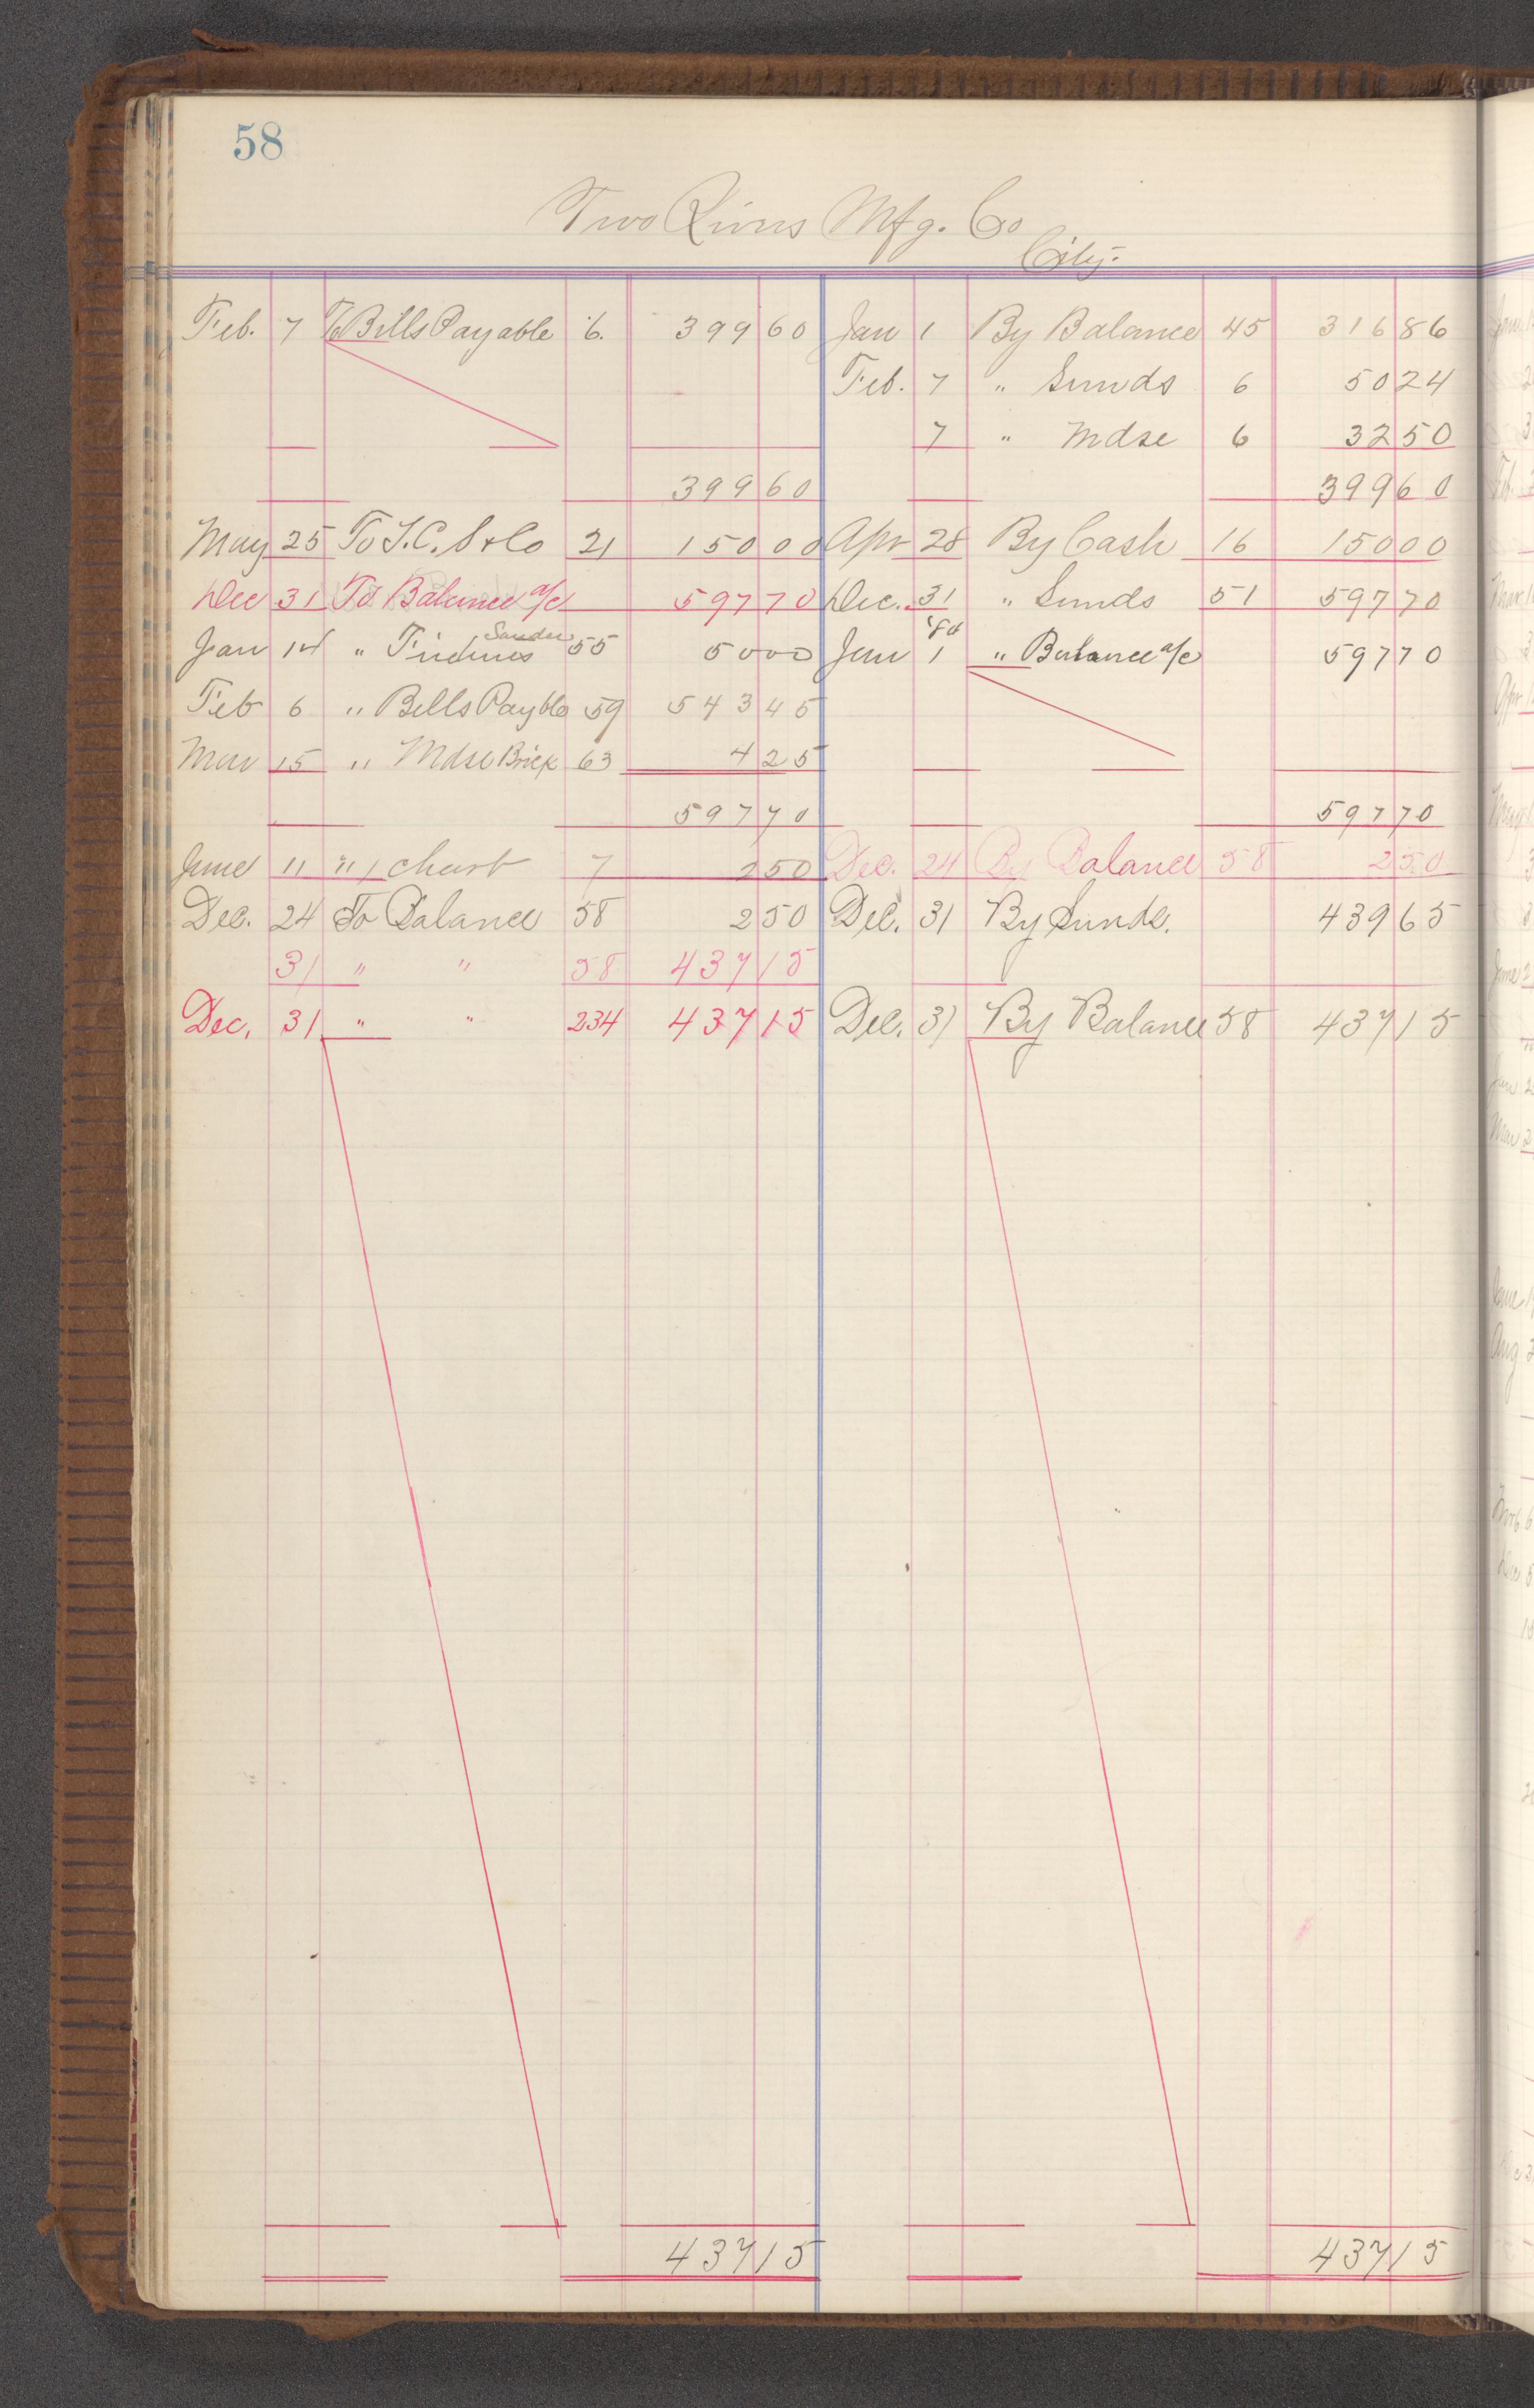 58
Two Rivers Mfg. Co
City.
Feb. 7 To Bills Payable 6. 399 60 Jan 1 By Balance 45 316 86
Feb. 7 " Sunds 6 50 24
7 " Mdse 6 32 50
399 60 399 60
May 25 To J.C. S & Co 21 150 00 Apr 28 By Cash 16 150 00
Dec 31 To Balance a/c 597 70 Dec. 31 " Sunds 51 597 70
Jan 14 " 55 50 00 Jan 1 " Balance a/c 597 70
Feb 6 " Bills Payble 59 543 45
Mar 15 " Mdse Brick 63 4 25
597 70 597 70
June 11 " 7 2 50 Dec. 24 By Balance 58 2 50
Dec. 24 To Balance 58 2 50 Dec. 31 By Sunds. 439 65
31 " " 58 437 15
Dec. 31 " " 234 437 15 Dec. 31 By Balance 58 437 15
437 15 437 15